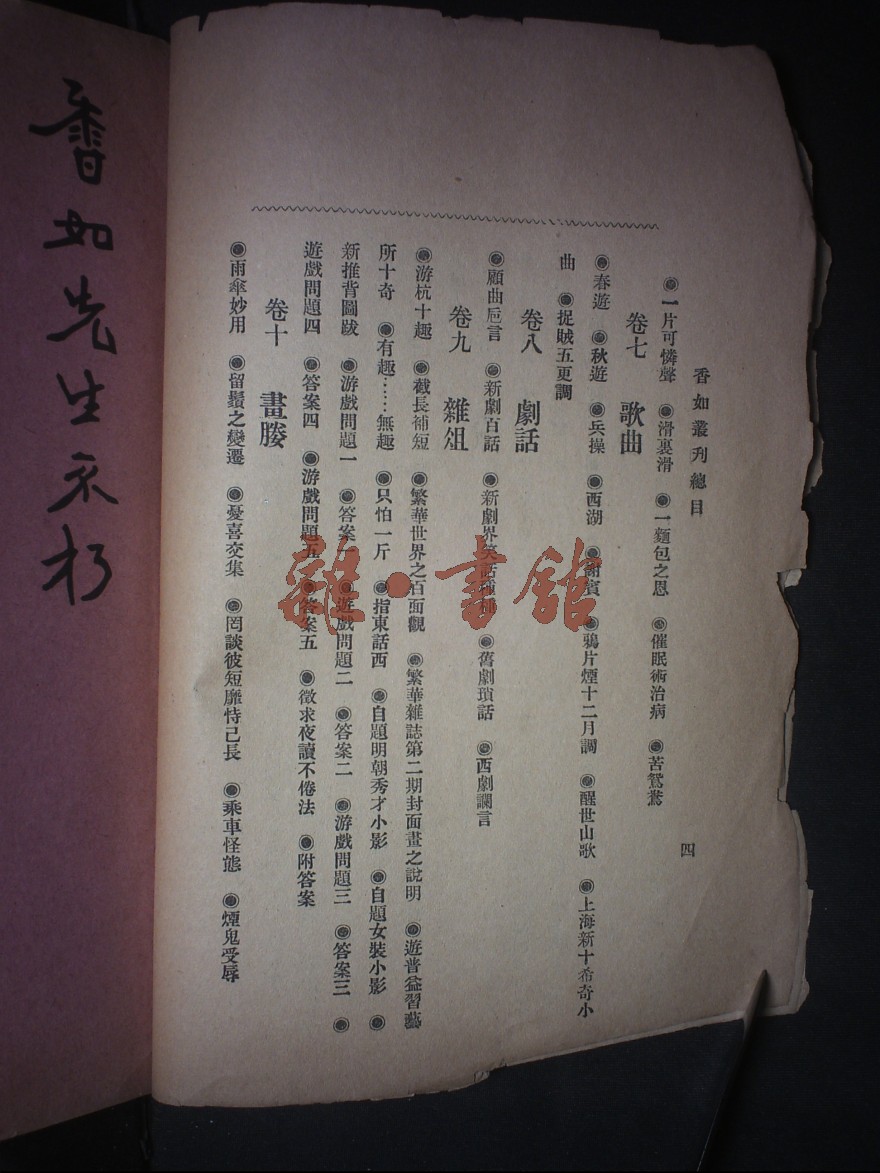 香如叢刊總目
四
◉一片可憐聲 ◉滑裏滑 ◉一麵包之恩 ◉催眠術治病 ◉苦鴛鴦
卷七 歌曲
◉春遊 ◉秋遊 ◉兵操 ◉西湖 ◉謝賓 ◉鴉片煙十二月調 ◉醒世山歌 ◉上海新十希奇小
曲 ◉捉賊五更調
卷八 劇話
◉顧曲巵言 ◉新劇百話 ◉新劇界笑話 ◉舊劇瑣話 ◉西劇讕言
卷九 雜俎
◉游杭十趣 ◉截長補短 ◉繁華世界之百面觀 ◉繁華雜誌第二期封面畫之說明 ◉遊普益習藝
所十奇 ◉有趣……無趣 ◉只怕一斤 ◉指東話西 ◉自題明朝秀才小影 ◉自題女裝小影 ◉
新推背圖跋 ◉游戲問題一 ◉答案一 ◉遊戲問題二 ◉答案二 ◉游戲問題三 ◉答案三 ◉
遊戲問題四 ◉答案四 ◉游戲問題五 ◉答案五 ◉徵求夜讀不倦法 ◉附答案
卷十 畫媵
◉雨傘妙用 ◉留鬚之變遷 ◉憂喜交集 ◉罔談彼短靡恃己長 ◉乘車怪態 ◉煙鬼受辱
香如先生不朽
雜·書館